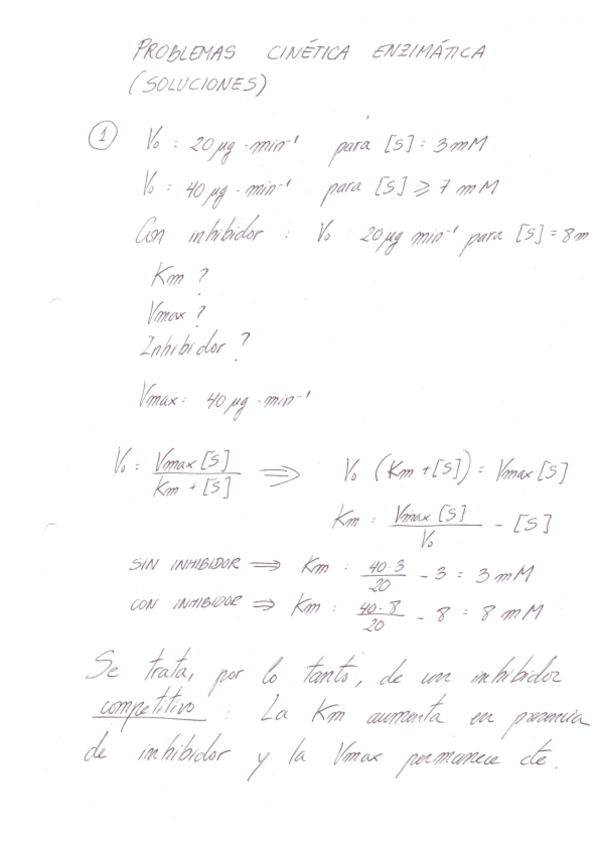 PROBLEMAS CINÉTICA ENZIMÁTICA
(SOLUCIONES)
1 V₀ : 20 μg · min⁻¹ para [S] : 3 mM
V₀ : 40 μg · min⁻¹ para [S] ⩾ 7 mM
Con inhibidor : V₀ 20 μg min⁻¹ para [S] = 8 m
Km ?
Vmax ?
Inhibidor ?
Vmax : 40 μg · min⁻¹
V₀ : Vmax [S] / Km + [S] ⟹ V₀ (Km + [S]) = Vmax [S]
Km : Vmax [S] / V₀ - [S]
SIN INHIBIDOR ⟹ Km : 40·3 / 20 - 3 = 3 mM
CON INHIBIDOR ⟹ Km : 40·8 / 20 - 8 = 8 mM
Se trata, por lo tanto, de un inhibidor
competitivo : La Km aumenta en presencia
de inhibidor y la Vmax permanece cte.